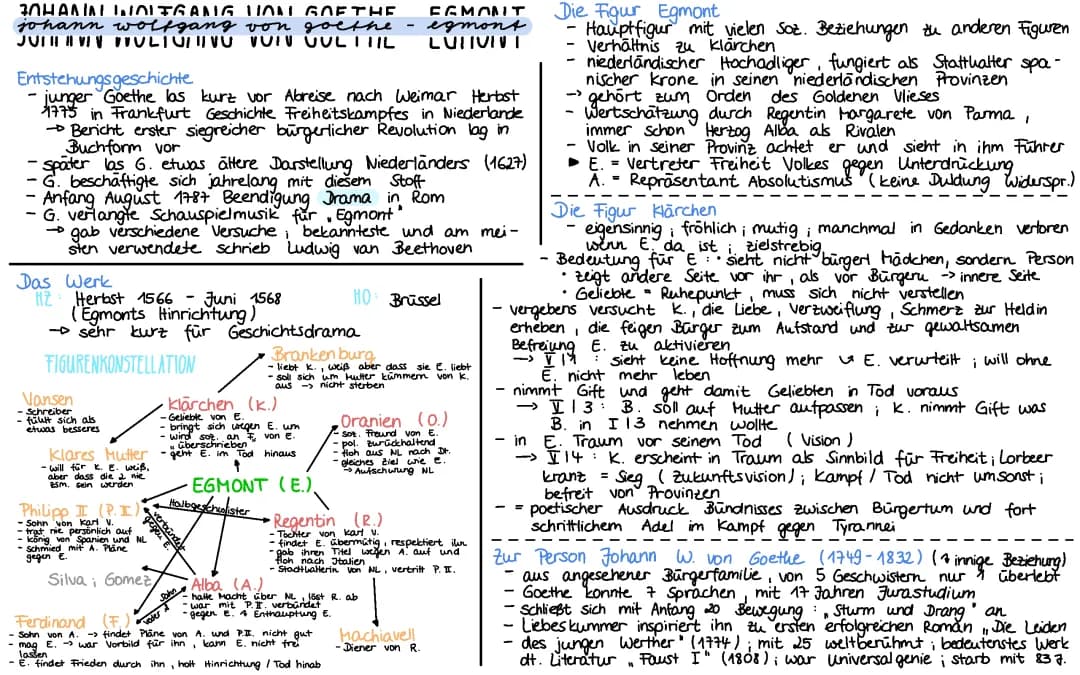 JOHANN WOLFGANG VON GOETHE - EGMONT
johann wolfgang von goethe - egmont
JOHANN WOLFGANG VON GOETHE EGMONT
Entstehungsgeschichte
- junger Goethe las kurz vor Abreise nach Weimar Herbst
1775 in Frankfurt Geschichte Freiheitskampfes in Niederlande
→ Bericht erster siegreicher bürgerlicher Revolution lag in
Buchform vor
- später las G. etwas ältere Darstellung Niederländers (1627)
- G. beschäftigte sich jahrelang mit diesem Stoff
- Anfang August 1787 Beendigung Drama in Rom
- G. verlangte Schauspielmusik für „Egmont"
→ gab verschiedene Versuche ; bekannteste und am mei-
sten verwendete schrieb Ludwig van Beethoven
Das Werk
HZ: Herbst 1566 - Juni 1568 HO: Brüssel
(Egmonts Hinrichtung)
→ sehr kurz für Geschichtsdrama
FIGURENKONSTELLATION
Brankenburg
- liebt K., weiß aber dass sie E. liebt
- soll sich um Mutter kümmern von K.
aus → nicht sterben
Vansen
- Schreiber
- fühlt sich als
etwas besseres
Klärchen (K.)
- Geliebte von E.
- bringt sich wegen E. um
- wird soz. an F. von E.
„überschrieben"
- geht E. im Tod hinaus
Oranien (O.)
- soz. Freund von E.
- pol. zurückhaltend
- floh aus NL nach Dt.
- gleiches Ziel wie E.
→ Aufschwung NL
Klares Mutter
- will für K. E. weiß,
aber dass die 2 nie
zsm. sein werden
EGMONT (E.)
Halbgeschwister
verbündet
gegen E.
Philipp II (P. II.)
- Sohn von Karl V.
- trat nie persönlich auf
- könig von Spanien und NL
- schmied mit A. Pläne
gegen E.
Regentin (R.)
- Tochter von Karl V.
- findet E. übermütig, respektiert ihn
- gab ihren Titel wegen A. auf und
floh nach Italien
- Stadthalterin von NL, vertritt P. II.
Silva ; Gomez
Alba (A.)
- halte Macht über NL, löst R. ab
- war mit P. II. verbündet
- gegen E. → Enthauptung E.
Sohn
Vater
Ferdinand (F.)
- Sohn von A. → findet Pläne von A. und P.II. nicht gut
- mag E. → war Vorbild für ihn, kann E. nicht frei
lassen
- E. findet Frieden durch ihn, holt Hinrichtung / Tod hinab
Machiavell
- Diener von R.
Die Figur Egmont
- Hauptfigur mit vielen Soz. Beziehungen zu anderen Figuren
- Verhältnis zu Klärchen
- niederländischer Hochadliger, fungiert als Statthalter spa-
nischer Krone in seinen niederländischen Provinzen
→ gehört zum Orden des Goldenen Vlieses
- Wertschätzung durch Regentin Margarete von Parma,
immer schon Herzog Alba als Rivalen
- Volk in seiner Provinz achtet er und sieht in ihm Führer
▶ E. = Vertreter Freiheit Volkes gegen Unterdrückung
A. = Repräsentant Absolutismus (keine Duldung Widerspr.)
Die Figur Klärchen
- eigensinnig ; fröhlich ; mutig ; manchmal in Gedanken verloren
wenn E. da ist ; zielstrebig
- Bedeutung für E : • sieht nicht bürgerl Mädchen, sondern Person
• zeigt andere Seite vor ihr, als vor Bürgern → innere Seite
• Geliebte = Ruhepunkt, muss sich nicht verstellen
- vergebens versucht K., die Liebe, Verzweiflung, Schmerz zur Heldin
erheben, die feigen Bürger zum Aufstand und zur gewaltsamen
Befreiung E. zu aktivieren
→ V|1 : sieht keine Hoffnung mehr E. verurteilt ; will ohne
E. nicht mehr leben
- nimmt Gift und geht damit Geliebten in Tod voraus
→ V|3 : B. soll auf Mutter aufpassen ; K. nimmt Gift was
B. in I|3 nehmen wollte
- in E. Traum vor seinem Tod (Vision)
→ V|4 : K. erscheint in Traum als Sinnbild für Freiheit ; Lorbeer
kranz = Sieg (Zukunftsvision) ; Kampf / Tod nicht umsonst ;
befreit von Provinzen
- = poetischer Ausdruck Bündnisses zwischen Bürgertum und fort
schrittlichem Adel im Kampf gegen Tyrannei
Zur Person Johann W. von Goethe (1749-1832) ( innige Beziehung)
- aus angesehener Bürgerfamilie, von 5 Geschwistern nur 1 überlebt
- Goethe konnte 7 Sprachen, mit 17 Jahren Jurastudium
- schließt sich mit Anfang 20 Bewegung „Sturm und Drang" an
- Liebeskummer inspiriert ihn zu ersten erfolgreichen Roman „Die Leiden
- des jungen Werther" (1774) ; mit 25 weltberühmt ; bedeutenstes Werk
dt. Literatur „Faust I" (1808) ; war Universalgenie ; starb mit 83 J.